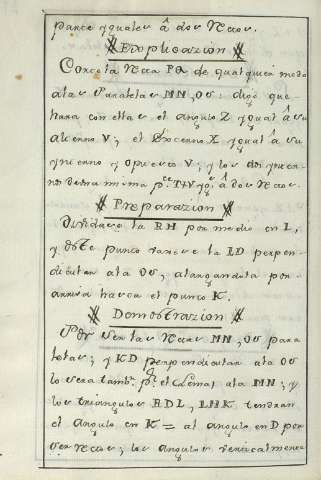 parte yguales â dos rectos.
Explicazion
Corte la recta PQ de qualquier modo
a las Paralelas MN, OS: digo que
hara con ellas el angulo Z ygual â su
alterno V; el Externo X ygual â su
ynterno y opuesto V; y los dos ynter-
nos de la misma pte T+V ygs. â dos rectos.
Preparazion
Dividase la RH por medio en L,
y de este punto tirese la LD perpen-
dicular a la OS, alargandola por
arriva hasta el punto K.
Demostrazion
Por ser las rectas MN, OS para
lelas; y KD perpendicular a la OS
lo sera tambn. pr. el Lema1 a la MN; y
los triangulos RDL, LHK tendran
el angulo en K = al angulo en D por
ser rectos; los angulos verticalmente